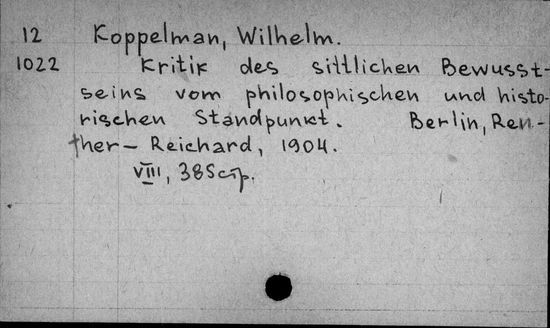 12 Koppelman, Wilhelm.
1022 Kritik des sittlichen Bewusst-
seins vom philosophischen und histo-
rischen Standpunkt. Berlin, Reu-
ther- Reichard, 1904.
VIII, 385 стр.